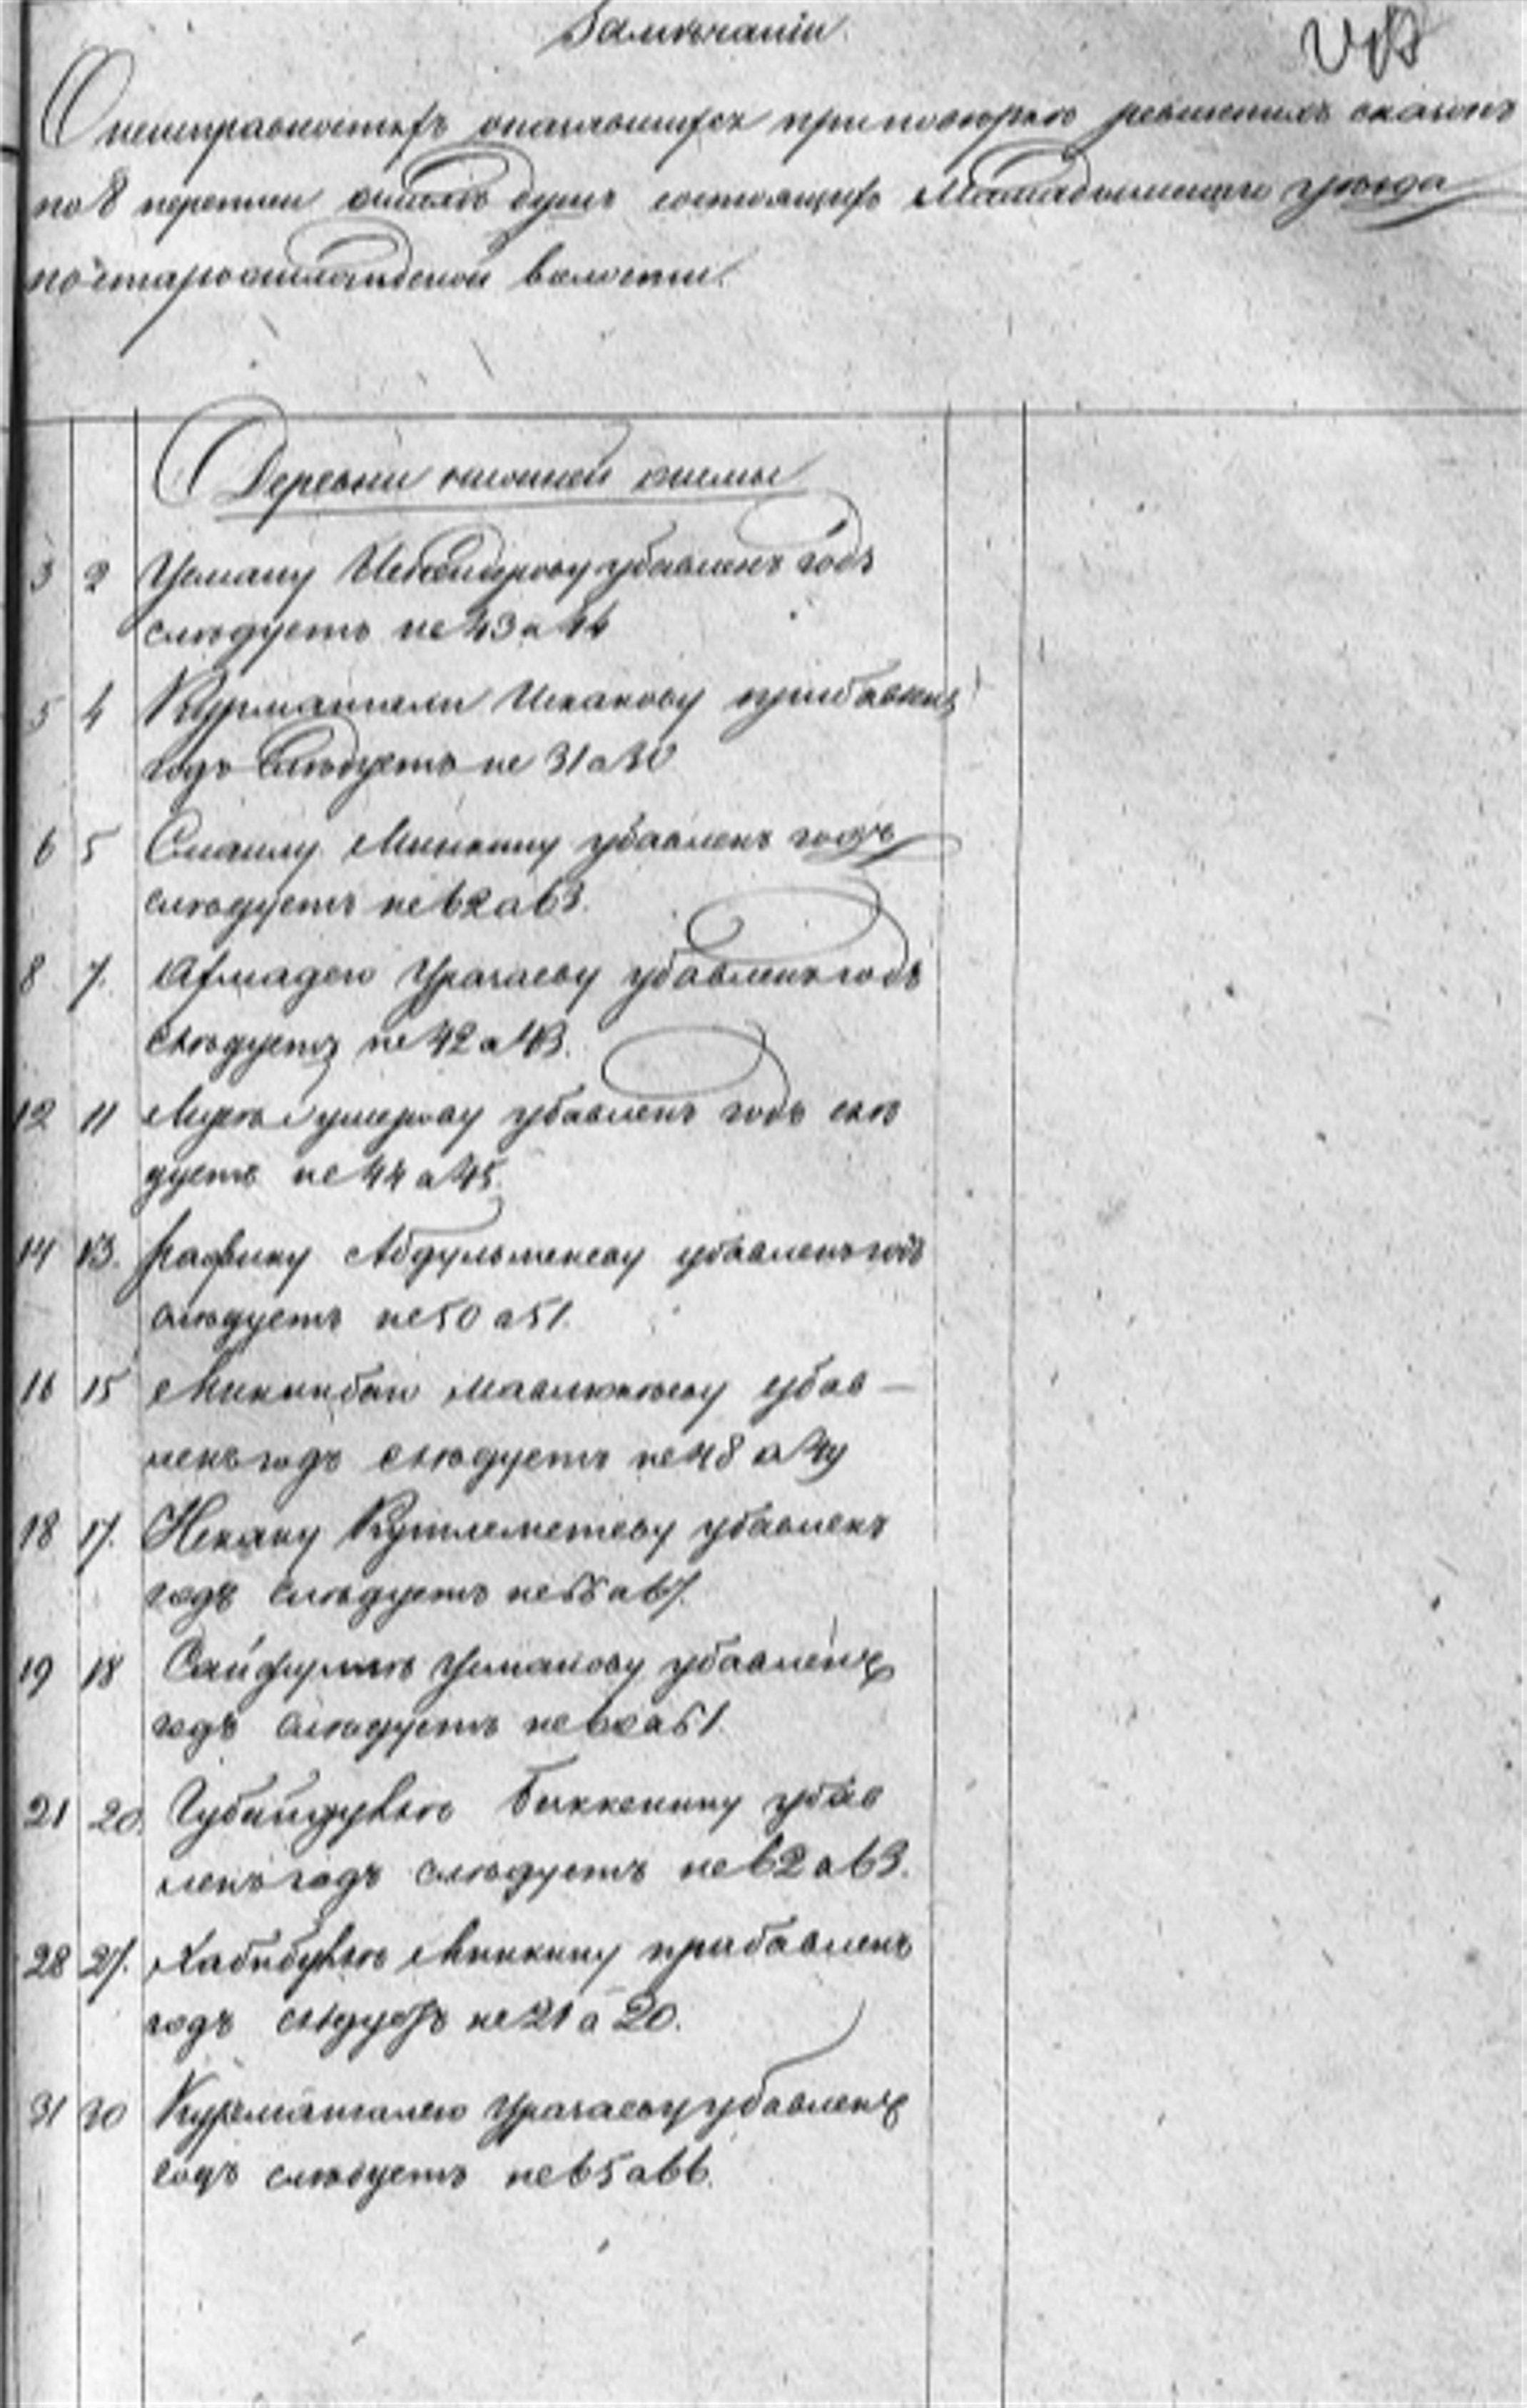 Замѣчаніи
О неисправностяхъ оказавшихся при повѣркѣ ревизскихъ сказокъ
по 8 переписи душъ состоящихъ Мамадышскаго уѣзда
по волости.
Деревни нижней
3 2 Усману Искандерову убавленъ годъ
слѣдуетъ не 43 а 44
5 4 Курмангали Исхакову прибавленъ
годъ слѣдуетъ не 31 а 30
6 5 Смаилу Минкину убавленъ годъ
слѣдуетъ не 62 а 63.
8 7. Ахмадею Уразаеву убавленъ годъ
слѣдуетъ не 42 а 43.
12 11 убавленъ годъ слѣ
дуетъ не 44 а 45.
14 13. Рафику Абдульменеву убавленъ годъ
слѣдуетъ не 50 а 51.
16 15 Миникбаю Мавлюкѣеву убав —
ленъ годъ слѣдуетъ не 48 а 49
18 17. Исхаку Кутлеметеву убавленъ
годъ слѣдуетъ не а 67.
19 18 Усманову убавленъ
годъ слѣдуетъ не а 61.
21 20. Губайдуллѣ Биккенину убав
ленъ годъ слѣдуетъ не 62 а 63.
28 27. Хабибуллѣ Минкину прибавленъ
годъ слѣдуетъ не 21 а 20.
31 30 Курмангалею Уразаеву убавленъ
годъ слѣдуетъ не 65 а 66.